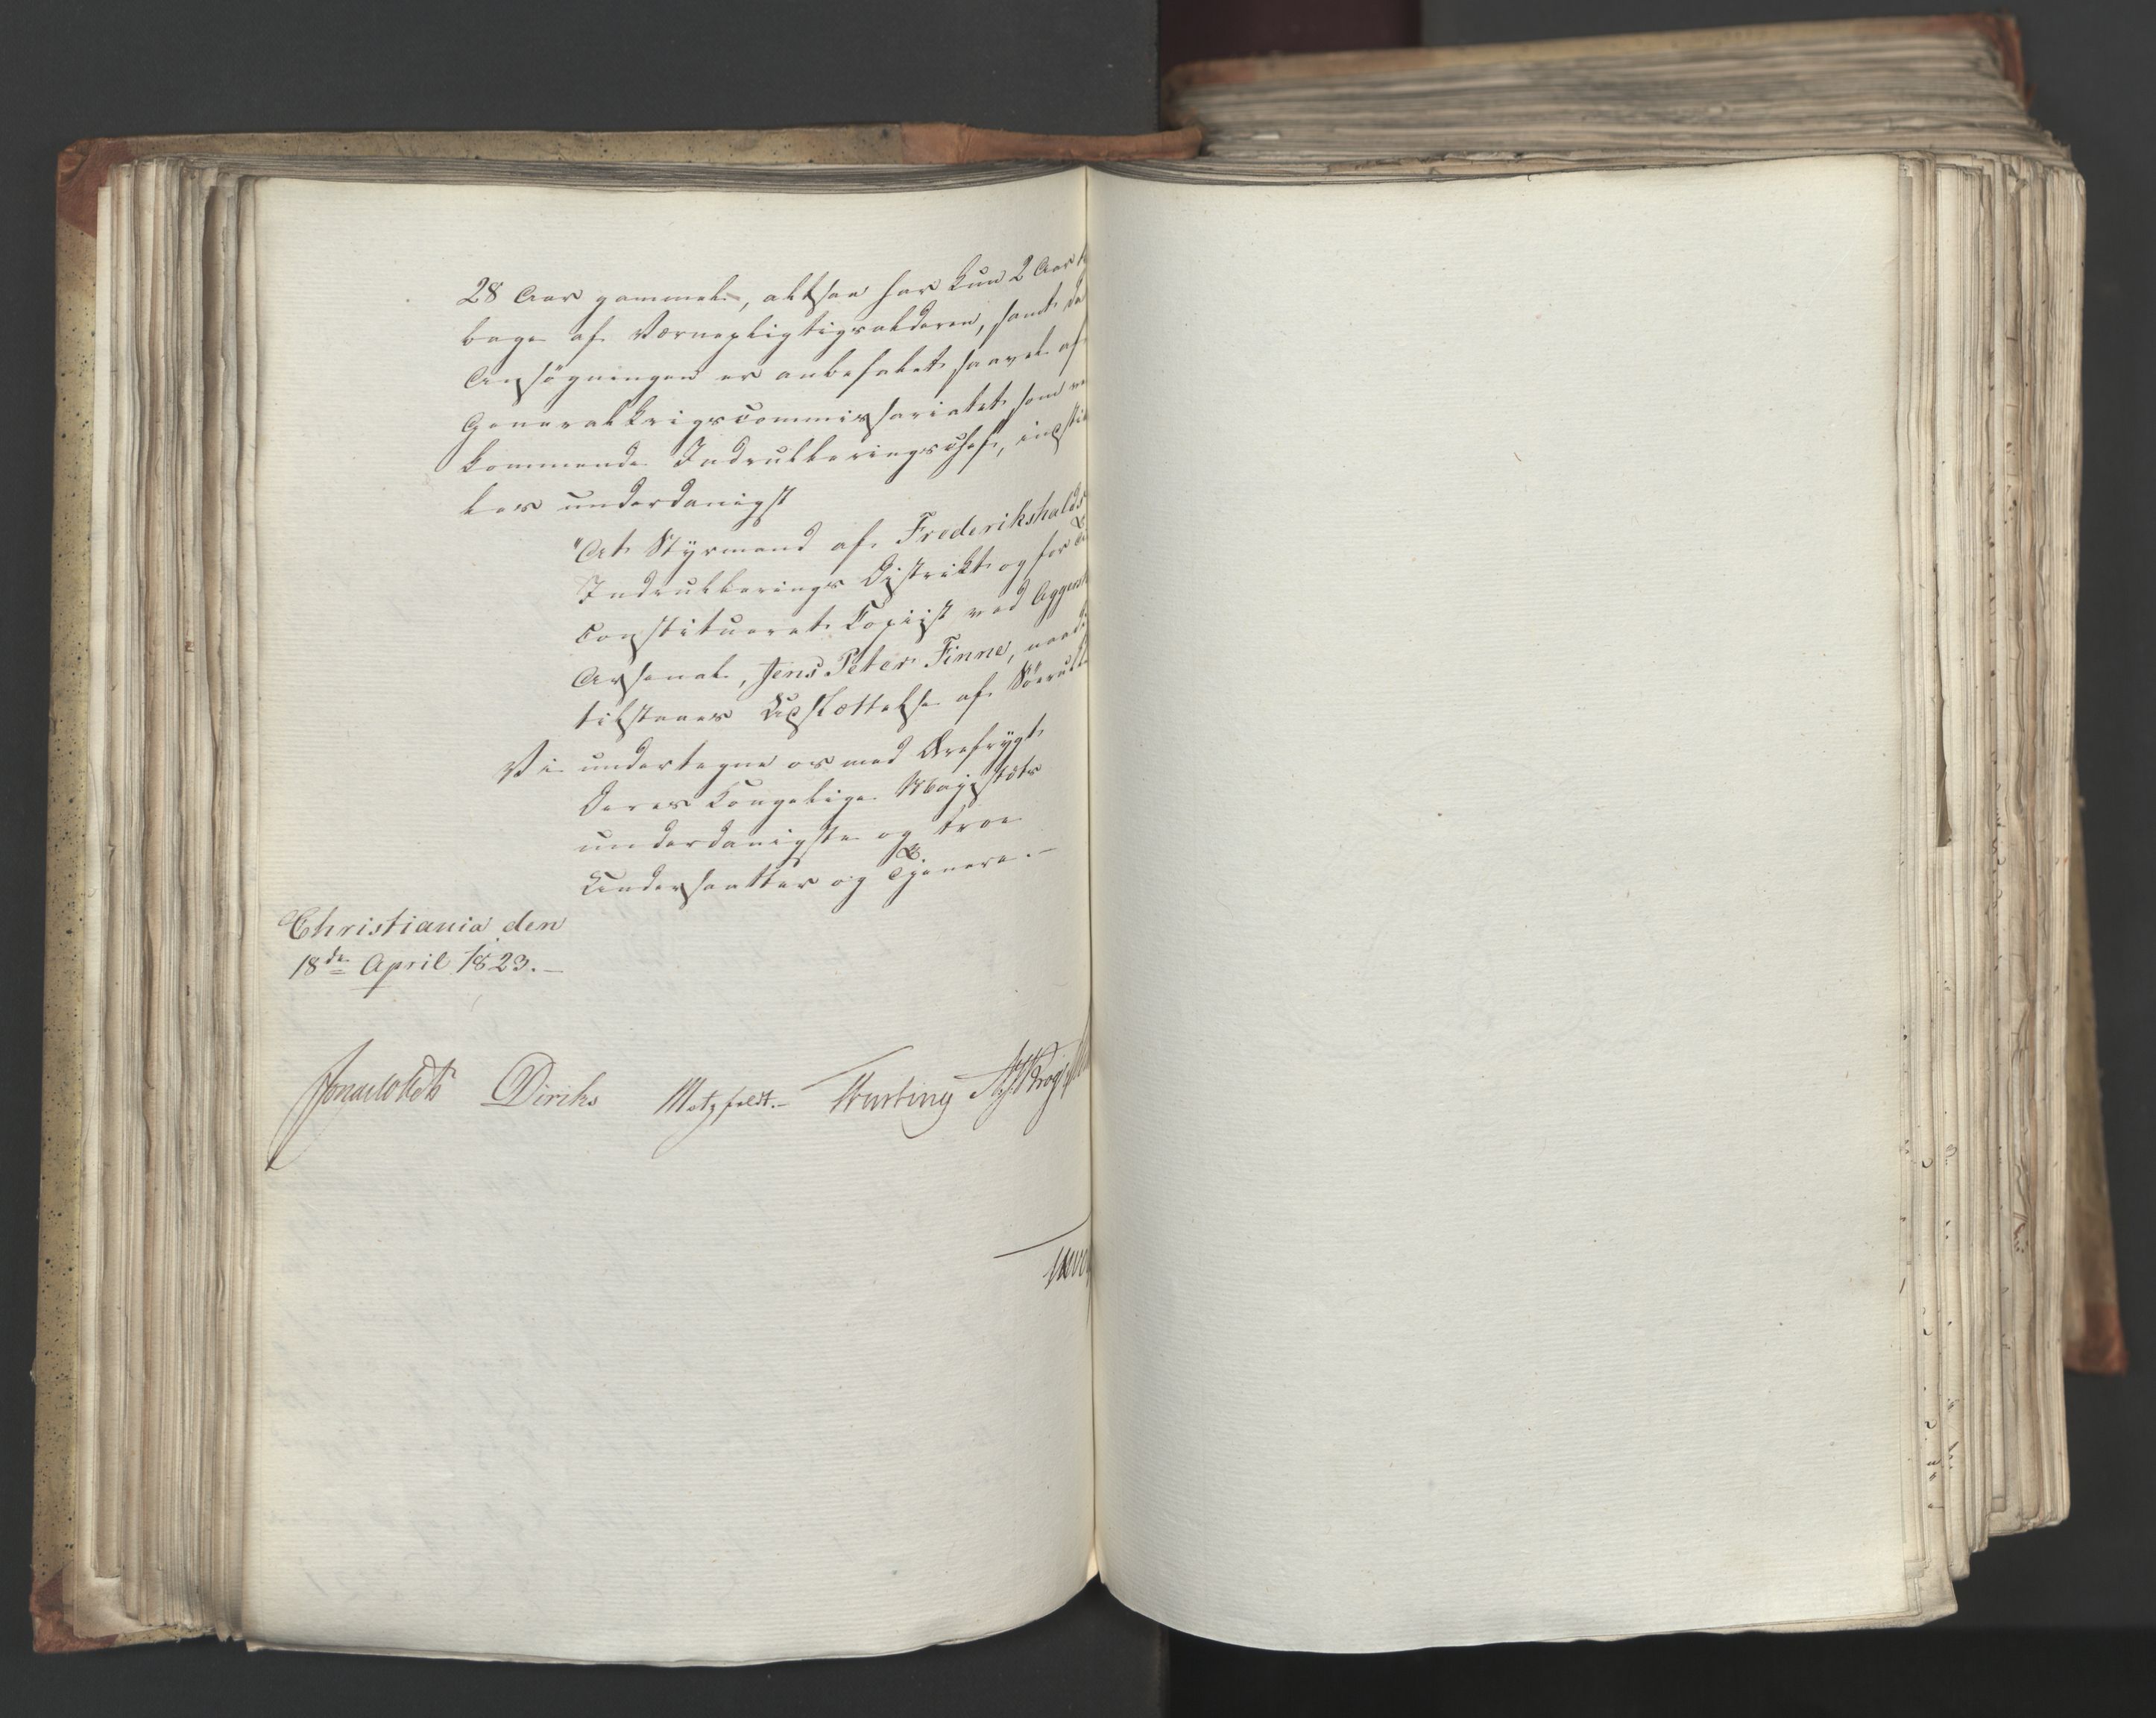 28 Aar gammel, altsaa har kun 2 Aar t
bage af Værnepligtigsalderen, samt da
Ansøgningen er anbefalet saavel af
Generalkrigscommissariatet som ved
kommende Indrulleringschef, instil
les underdanigst
"At Styrmand af Frederikshalds
Indrullerings Distrikt og for
Constitueret Copiist ved Aggers
Arsenal, Jens Peter Finne, naadi
tilstaaes Udslættelse af Søerull
Vi undertegne os med Ærefrygt
Deres Kongelige Majestæts
underdanigste og troe
Undersaatter og Tjenere.-
Christiania den
18de April 1823.-
Diriks Motzfeldt.- Treschow